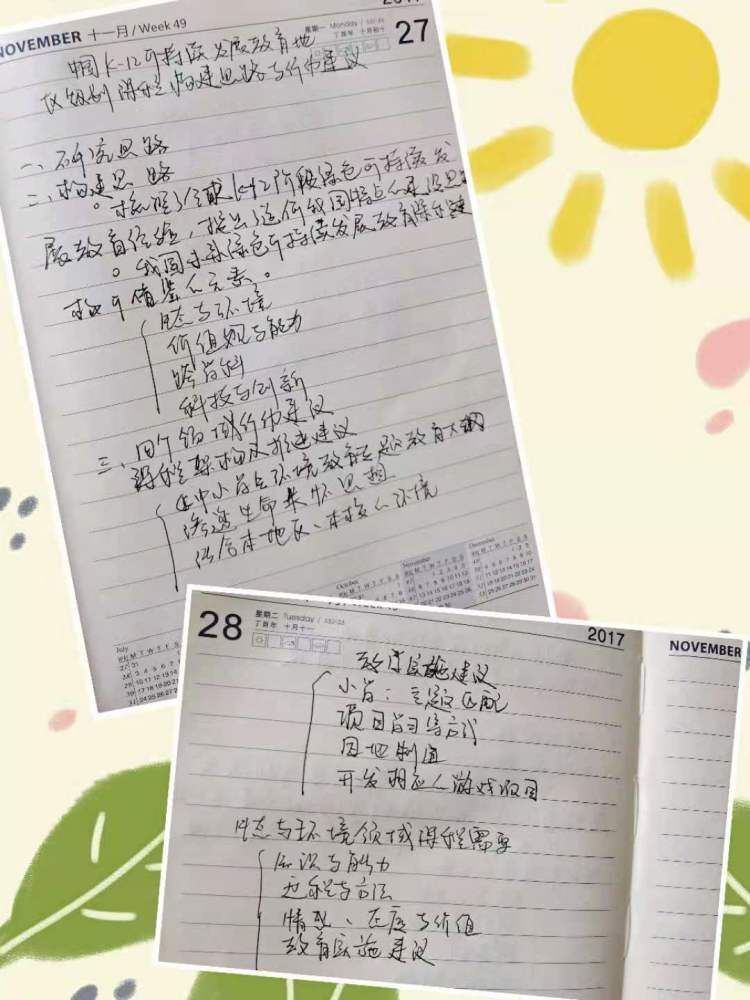 NOVEMBER 十一月 / Week 49
星期一 Monday / 331-34
丁酉年 十月初十
27
中国K-12可持续发展教育地
区级别课程构建思路与行动建议
一、研究思路
二、构建思路
。梳理了全球K-12阶段绿色可持续发
展教育经验，提出了适合我国特点的建设思
。我国未来绿色可持续发展教育课程建
构可借鉴的元素。
生态与环境
价值观与能力
跨学科
科技与创新
三、四个领域行动建议
课程架构及推进建议
中小学生环境教育主题教育
渗透生命关怀思想
结合本地区、本校的环境
October
November
December
July
28
星期二 Tuesday / 332-33
丁酉年 十月十一
2017
NOVEMBER
教学实施建议
小学：主题匹配
项目学习等方式
因地制宜
开发相应的游戏项目
生态与环境领域课程需要
知识与能力
过程与方法
情感、态度与价值
教育实施建议